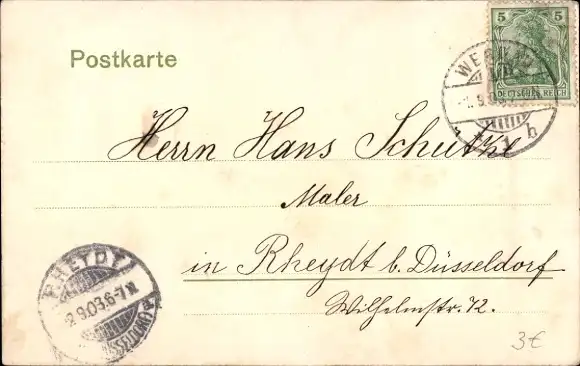 Postkarte
5 5
DEUTSCHES REICH
Herrn Hans Schütze
Maler
in Rheydt b. Düsseldorf
Wilhelmstr. 72.
RHEYDT
2.9.03.6-7N
3€